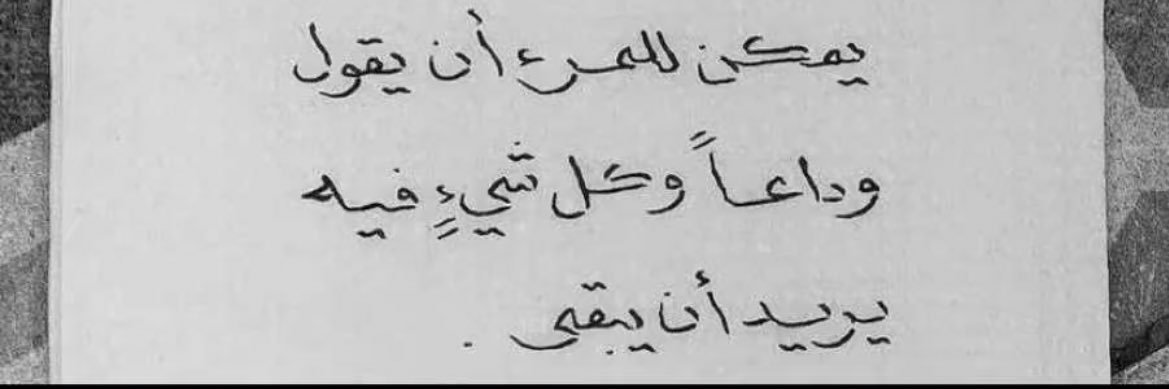 يمكن للمرء أن يقول
وداعاً وكل شيءٍ فيه
يريد أن يبقى .